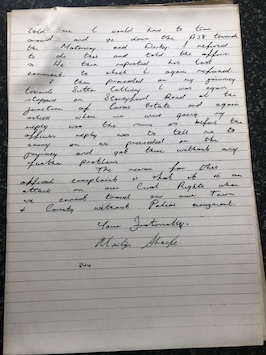 told me I would have to turn
around and go down the A38 towards
the Motorway and Derby I refused
to do this and told the officer
so He then repeated his last
comment to which I again refused.
I then proceeded on my journey
towards Sutton Calling I was again
stopped on Stoneyford Road at the
junction of Carsic Estate and again
asked where we were going my
reply was the same as before the
officers reply was to tell me to
carry on we proceeded on the
journey and got there without any
further problem
The reason for this
official complaint is that it is an
affront on our Civil Rights when
we cannot travel our own Town
& County without Police
Yours Fraternally.